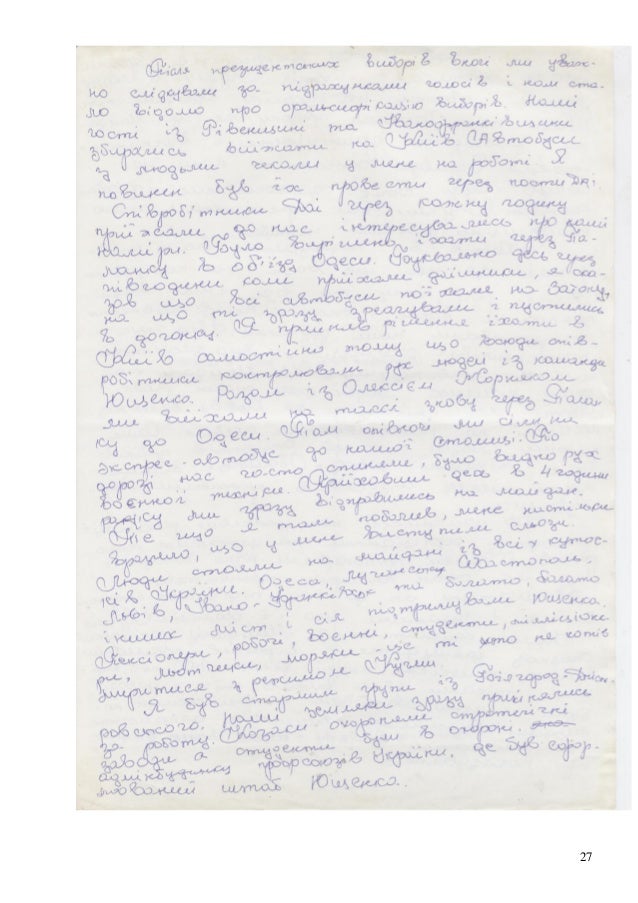 Після президентських виборів вночі ми уваж-
но слідкували за підрахунками голосів і нам ста-
ло відомо про фальсифікацію виборів. Наші
гості із Рівенщини та Іванофранківщини
збирались виїжати на Київ. Автобуси
з людьми чекали у мене на роботі. Я
повинен був їх провести через пости ДАІ.
Співробітники Даі через кожну годину
приїжали до нас інтересувались про наші
наміри. Було вирішено їхати через Па-
ланку в об'їзд Одеси. Буквально десь через
півгодини коли приїхали даішники, я ска-
зав що всі автобуси поїхали на Затоку,
на що ті зразу зреагували і пустились
в догонку. Я прийняв рішення їхати в
Київ самостійно тому що всюди спів-
робітники контролювали рух людей із команди
Ющенка. Разом із Олексієм
ми виїхали на таксі знову через Палан-
ку до Одеси. Там ми сіли на
экспрес-автобус до нашої столиці. По
дорозі нас часто спиняли, було видно рух
воєнної техніки. Приїхавши десь в 4 години
ранку ми зразу відправились на майдан.
Те що я там побачив, мене настільки
вразило, що у мене виступили сльози.
Люди стояли на майдані із всіх куточ-
ків України. Одеса, Луганськ, Севастополь,
Львів, Івано-Франківськ та багато, багато
інших міст і сіл підтримували Ющенка.
Пенсіонери, робочі, воєнні, студенти, міліціоне-
ри, льотчики, моряки - це ті хто не хотів
миритися з режимом Кучми.
Я був старшим групи із Білгород-Дніст-
ровського. Наші земляки зразу прийнялись
за роботу. Козаки охороняли стратегічні
заводи а студенти були в охороні.
адмінбудинку профсоюзів України, де був сфор-
мований штаб Ющенка.
27